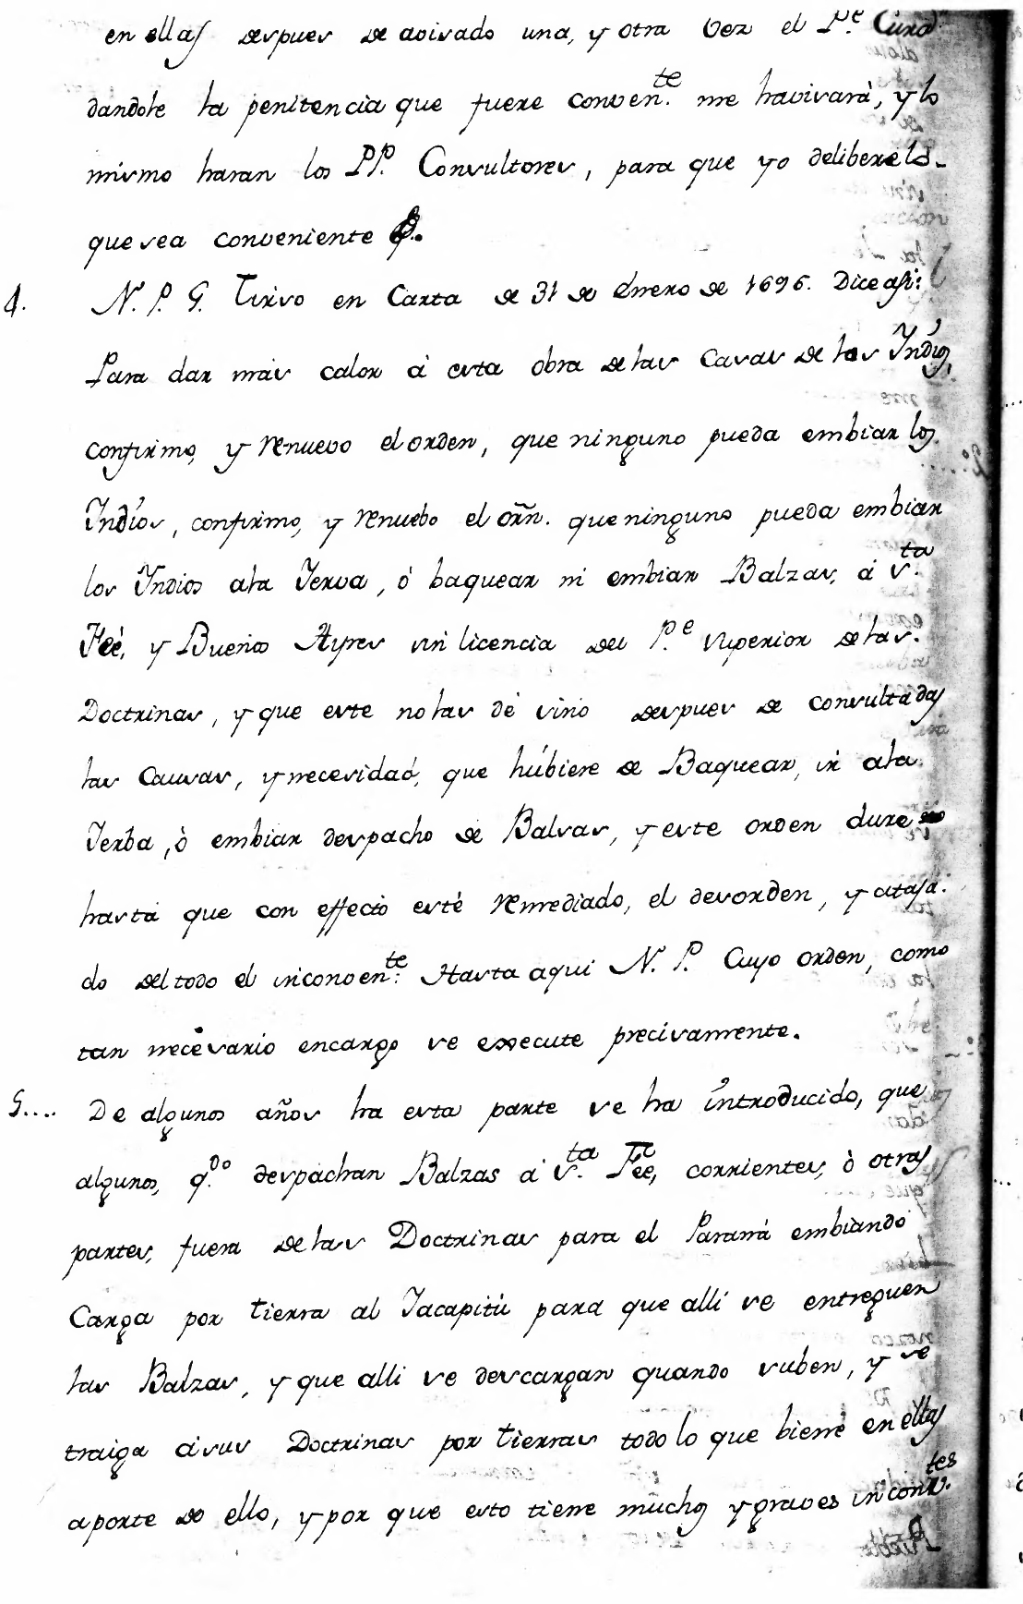 en ellas despues de avisado una, y otra vez el P.e Cura
dandole la penitencia que fuere conven.te me havisará, y lo
mismo haran los PP. Consultores, para que yo delibere lo
que sea conveniente
4. N. P. G. Tirso en Carta de 31 de Enero de 1696. Dice asi:
Para dar más calor á esta obra de las Casas de los Yndios,
confirmo, y renuevo el orden, que ninguno pueda embiar los
Yndios, confirmo, y renuebo el orñ. que ninguno pueda embiar
los Yndios ala Yerva, ó baquear ni embiar Balzas, á S.ta
Feé, y Buenos Ayres sin licencia del P.e Superior de las
Doctrinas, y que este no las dé sino despues de consultadas
las Causas, y necesidad, que húbiere de Baquear, ir ala
Yerba, ò embiar despacho de Balsas, y este orden dure
hasta que con effecto esté remediado, el desorden, y ataja-
do del todo el inconven.te: Hasta aqui N. P. Cuyo orden, como
tan necesario encargo se execute precisamente.
5.... De algunos años ha esta parte se ha introducido, que
algunos, q.do despachan Balzas á S.ta Feé, corrientes, ò otras
partes, fuera de las Doctrinas para el Paraná embiando
Carga por tierra al Yacapitú para que alli se entreguen
las Balzas, y que alli se descargan quando suben, y se
traiga á sus Doctrinas por tierras todo lo que biene en ellas
aporte de ello, y por que esto tiene muchos y graves inconv.tes